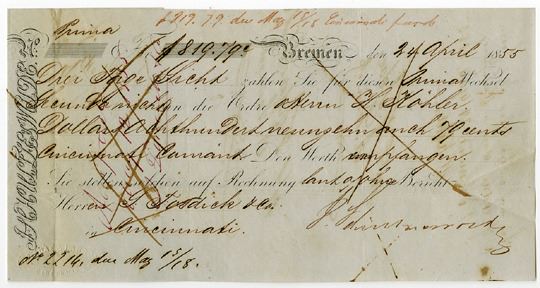 $819.79. due May 15/18
Prima
$819.79c Bremen den 24 April 1855
Drei Tage Sicht zahlen Sie für diesen Prima Wechsel
an die Ordre Herrn H. Köhler
Dollars Achthundertneunzehn und 79 cents
Cincinnati Courant Den Werth empfangen.
Sie stellen auf Rechnung laut Bericht
Herren Fosdick & Co.
in Cincinnati.
No. 2214. due May 15/18.